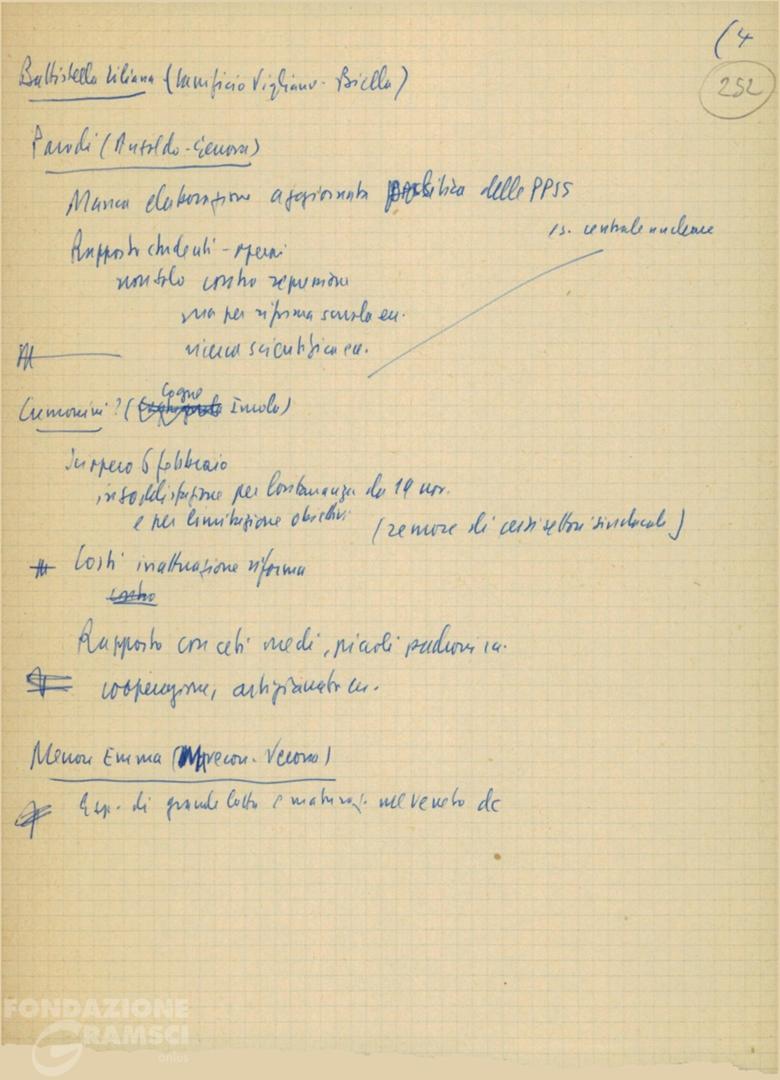 (4
252
Battistella Liliana (Lanificio Vigliano - Biella)
Parodi (Ansaldo - Genova)
Manca elaborazione aggiornata politica delle PPSS
es. centrale nucleare
Rapporto studenti - operai
non solo contro repressione
ma per riforma scuola ecc.
ricerca scientifica ecc.
Cremonini? (Cogne Imola)
Sciopero 6 febbraio
insoddisfazione per lontananza da 19 nov.
e per limitazione obiettivi (remore di certi settori sindacali)
Costi inattuazione riforma
contro
Rapporto con ceti medi, piccoli padroni
cooperazione, artigianato ecc.
Menon Emma ( - Verona)
Esp. di grande lotta e maturaz. nel veneto dc
FONDAZIONE
GRAMSCI
onlus